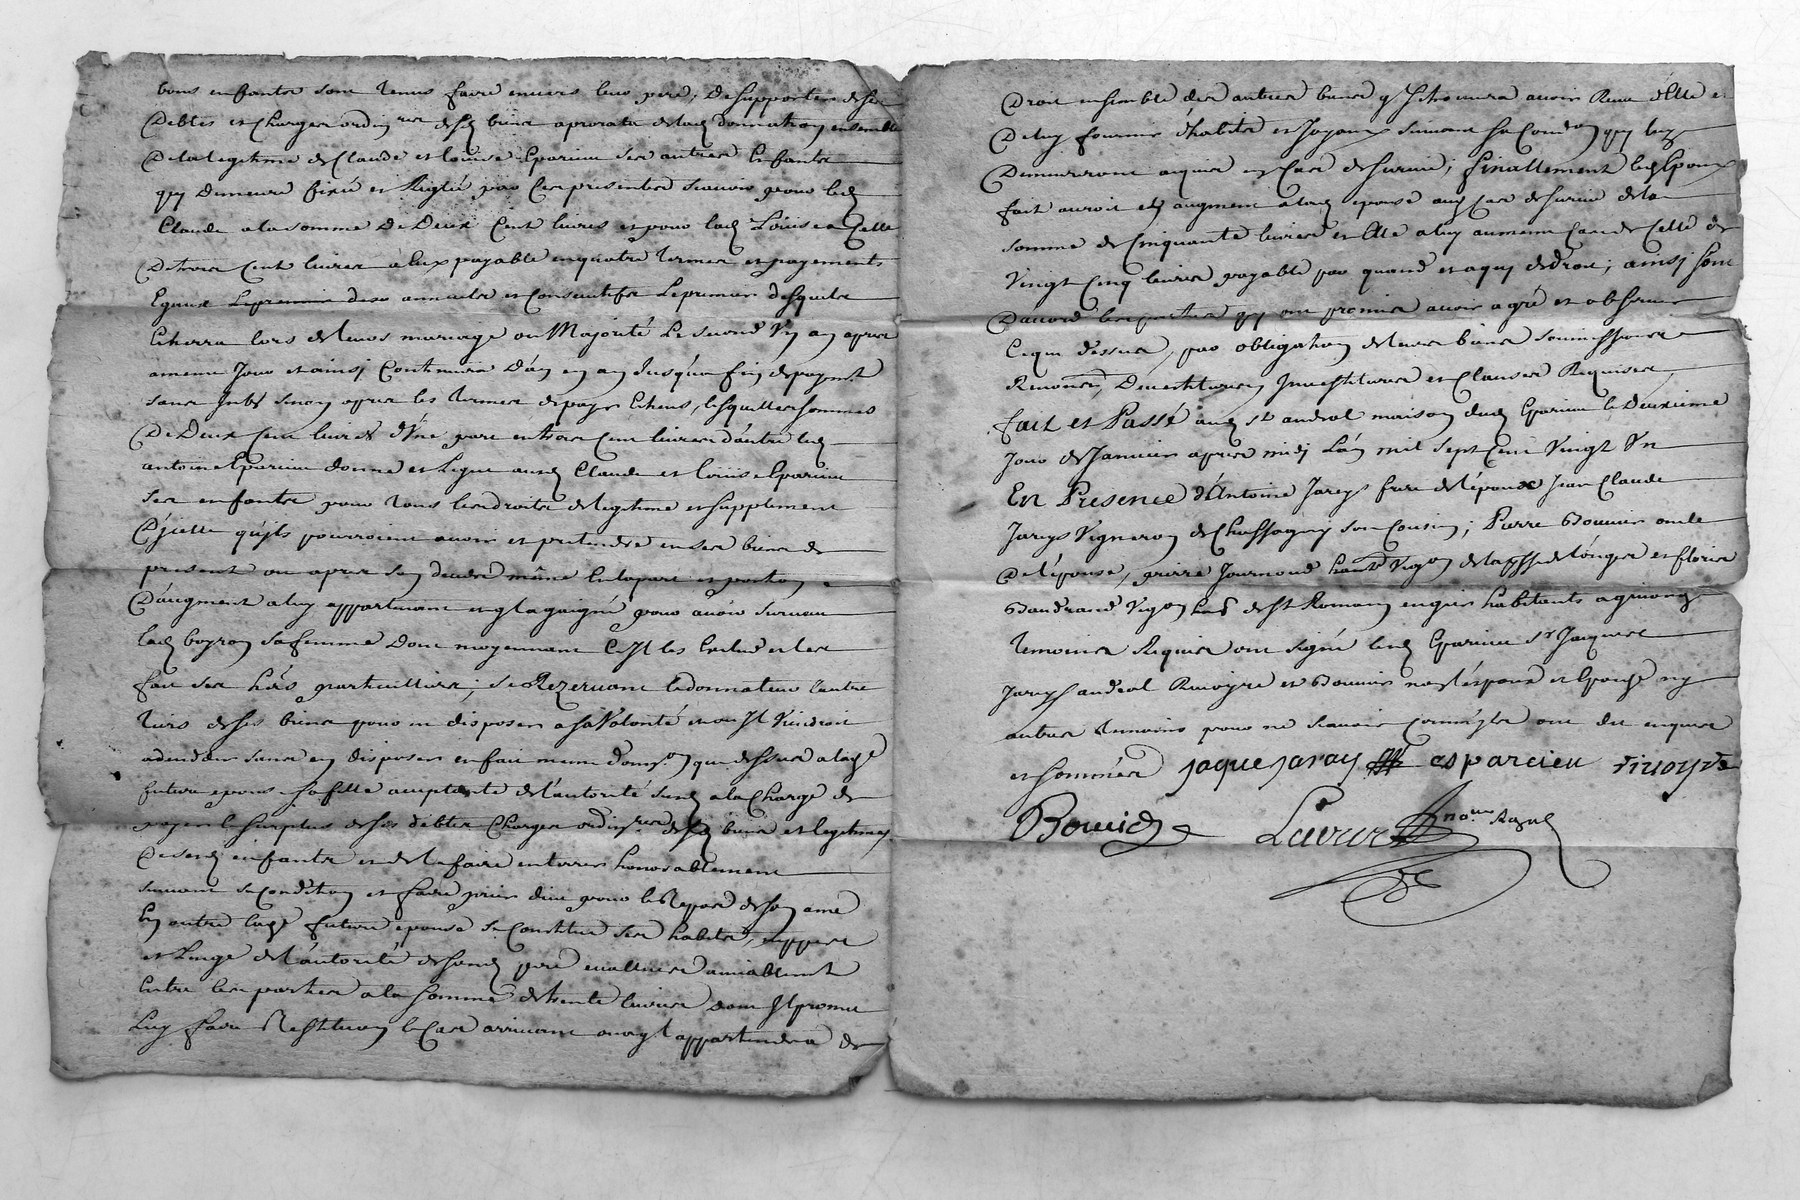 bons enfants sont tenus faire envers leur pere, De supporter de ses
Debtes et Charges ordin.res desd biens aprorata de lad donnation ensemble
De la legitime de Claude et louise Eparcieu ses autres Enfants
quy Demeure fixée et Reglée par Ces presentes scauoir pour led
Claude a la somme De Deux Cent liures et pour lad Louise a Celle
De trois Cent liures a Eux payable en quatre termes et payements
Egaux de an annuels et Consecutifs Le premier desquels
Echerra lors de leurs mariage ou Majorité Le second Vn an apres
a meme Jour et ainsi Continuer D'an en an Jusqu'a fin de paymt
sans Intr sinon apres les termes de paye Echeus, lesquelles sommes
De Deux Cent liures d'Vne part et trois Cent liures d'autre led
antoine Eparcieu donne et Legue ausd Claude et louise Eparcieu
ses enfants pour tous les droits de legitime et supplement
D'jcelle qu'jls pourroient auoir et pretendre en ses biens de
present ou apres son deces même En la part et portion
D'augment a luy appartenant et gagné pour auoir suruecu
lad boyron sa femme Dont moyennant Ce Jl les
fait ses hers particulliers; se Rezeruant le donnateur l'autre
tiers de ses biens pour en disposer a sa Volonté et ou Jl Viendroit
a deceder sans en disposer en fait meme Don que dessus a lad
future epouse sa fille acceptante de l'autorité susd a la Charge de
payer le surplus de ses debtes Charges ordin.res desd biens et legitimes
De sesd enfants et de le faire enterrer honorablement
suiuant sa Condition et faire prier dieu pour le Repos de son ame
En outre lade future epouse se Constitue ses habits, nippes
et Linge de l'autorité de sond pere eualluées amiablement
Entre les parties a la somme de trente liures dont Jl promet
Luy faire Restitution le Cas arriuant auxql appartiendra de
Droit ensemble des autres biens qu'Il se trouuera auoir Receu d'Elle et
De luy fournir d'habits et Joyaux suiuant sa Condon quy luy
Demeureront acquis en Cas de suruie; finallement led Epoux
fait auroit et augment a lad epouse aud Cas de suruie de la
somme de Cinquante liures et Elle a luy au meme Cas de Celle de
Vingt Cinq liures payable par quand et a quy de droit; ainsj sont
D'accord les parties quy ont promis auoir agré et obseruer
Ce que dessus, par obligation de leurs biens soumissions
Renonces, Deuestitures Inuestitures et Clauses Requises
fait et Passé aud st andeol maison dud Eparcieu le Deuxieme
Jour de Januier apres midj L'an mil sept Cent Vingt Vn
En Presence d'Antoine Jareys frere de l'epoux Jean Claude
Jareys Vigneron de Chassagny son Cousin; Pierre Bouuier oncle
De l'epouse, pierre Journoud hant Vigon de la psse de longes et fleurie
Baudrand Vigon de St Romain en gier habitants a
temoins Requis ont signé led Eparcieu Sr Jacques
Jareys andeol Riuoyre et Bouuier non l'epoux et l'epouse ny
autres temoins pour ne scauoir Comme Jls ont dit enquis
et sommés jaque jaray esparcieu riuoyre
Bouuier Laurier nore Royal